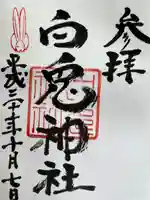 参拝
白兎神社
平成二十年十月七日